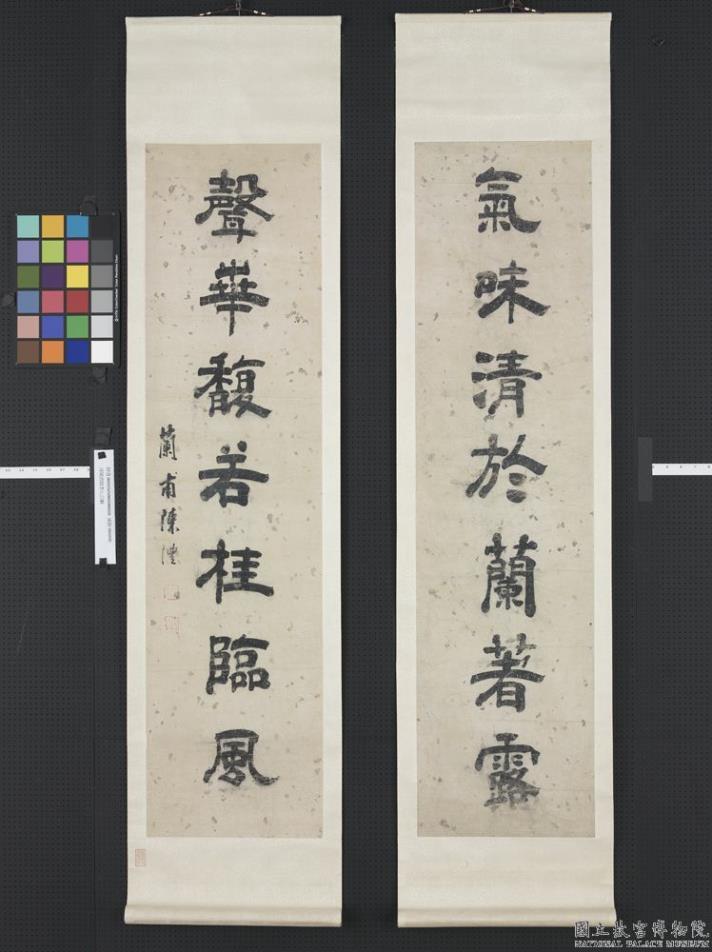 氣味清於蘭著露
聲華馥若桂臨風
蘭甫陳澧
國立故宮博物院
NATIONAL PALACE MUSEUM